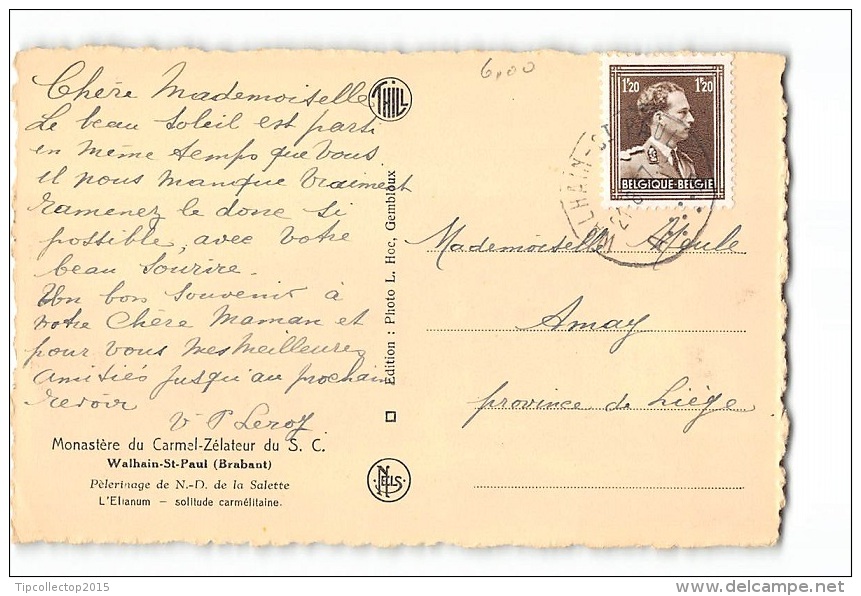 6,00
Chère Mademoiselle
Le beau Soleil est parti
en même temps que vous
il nous manque vraiment
ramenez le donc si
possible, avec votre
beau sourire.
Un bon souvenir à
votre Chère Maman et
pour vous mes meilleures
amitiés jusqu'au prochain
revoir
V P Leroy
Monastère du Carmel-Zélateur du S. C.
Walhain-St-Paul (Brabant)
Pèlerinage de N.-D. de la Salette
L'Elianum — solitude carmélitaine.
THILL
Edition : Photo L. Hoc, Gembloux
NELS
1F20 1F20
BELGIQUE-BELGIË
WALHAIN-ST
Mademoiselle
Amay
province de Liège
Tipcollectop2015
delcampe.net